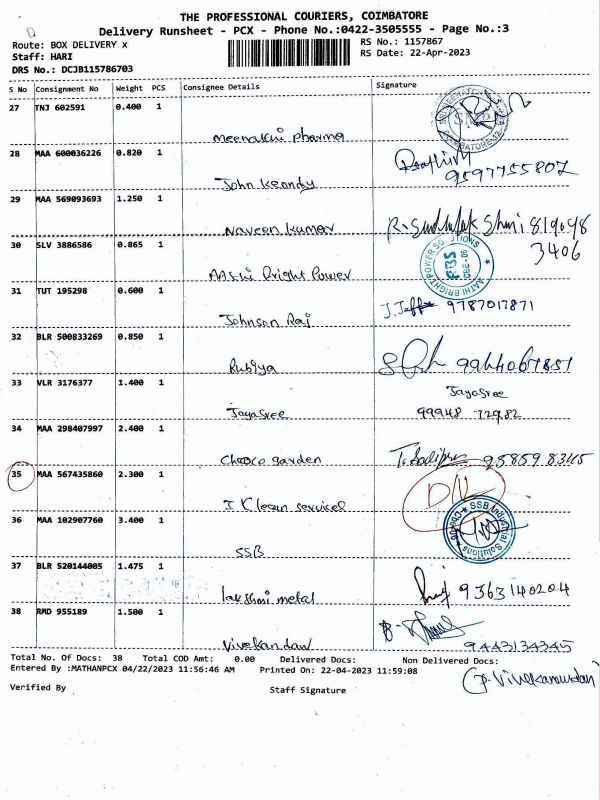 THE PROFESSIONAL COURIERS, COIMBATORE
Delivery Runsheet - PCX - Phone No.:0422-3505555 - Page No.:3
Route: BOX DELIVERY x
RS No.: 1157867
Staff: HARI
RS Date: 22-Apr-2023
DRS No.: DCJB115786703
S No Consignment No Weight PCS Consignee Details Signature
27 TNJ 602591 0.400 1
Meenakshi pharma
28 MAA 600036226 0.820 1
John Keandy 9597755807
29 MAA 569093693 1.250 1
Naveen Kumar 819098
3406
30 SLV 3886586 0.865 1
AATHI BRIGHT POWER SOLUTIONS
Bright Power
31 TUT 195298 0.600 1
Johnson Raj J.Jeff 9787017871
32 BLR 500833269 0.850 1
Rubiya
33 VLR 3176377 1.400 1
JayaSree
JayaSree
99948 72982
34 MAA 298407997 2.400 1
garden 95859 8345
35 MAA 567435860 2.300 1
D/L
I Klean services
36 MAA 102907760 3.400 1
SSB Industrial Solutions
SSB
37 BLR 520144005 1.475 1
lakshmi metal 9363140204
38 RMD 955189 1.500 1
Vivekandaw 9443134345
Total No. Of Docs: 38 Total COD Amt: 0.00 Delivered Docs: Non Delivered Docs:
Entered By :MATHANPCX 04/22/2023 11:56:46 AM Printed On: 22-04-2023 11:59:08
Verified By Staff Signature